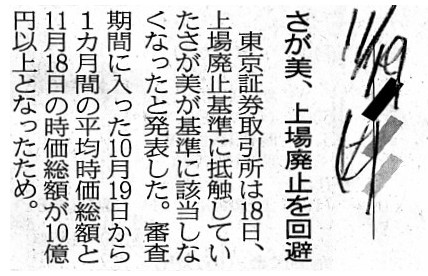 11/19
さが美、上場廃止を回避
東京証券取引所は18日、
上場廃止基準に抵触してい
たさが美が基準に該当しな
くなったと発表した。審査
期間に入った10月19日から
1カ月間の平均時価総額と
11月18日の時価総額が10億
円以上となったため。